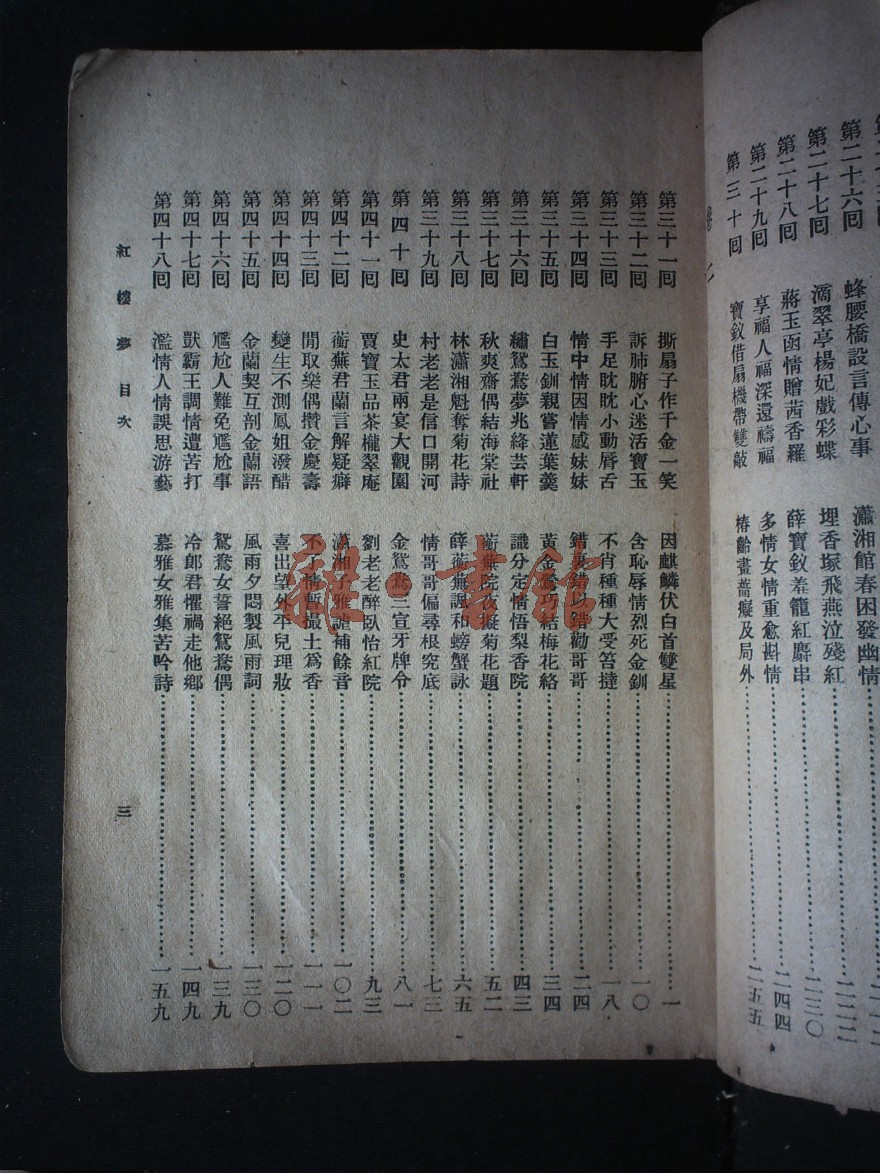 第二十六回 蜂腰橋設言傳心事 瀟湘館春困發幽情
第二十七回 滴翠亭楊妃戲彩蝶 埋香塚飛燕泣殘紅
第二十八回 蔣玉函情贈茜香羅 薛寶釵羞籠紅麝串 二三〇
第二十九回 享福人福深還禱福 多情女情重愈斟情 二四四
第三十回 寶釵借扇機帶雙敲 椿齡畫薔癡及局外 二五五
第三十一回 撕扇子作千金一笑 因麒麟伏白首雙星 一
第三十二回 訴肺腑心迷活寶玉 含恥辱情烈死金釧 一〇
第三十三回 手足眈眈小動脣舌 不肖種種大受笞撻 一八
第三十四回 情中情因情感妹妹 錯裏錯以錯勸哥哥 二四
第三十五回 白玉釧親嘗蓮葉羹 黃金鶯巧結梅花絡 三四
第三十六回 繡鴛鴦夢兆絳芸軒 識分定情悟梨香院 四三
第三十七回 秋爽齋偶結海棠社 蘅蕪院夜擬菊花題 五二
第三十八回 林瀟湘魁奪菊花詩 薛蘅蕪諷和螃蟹詠 六五
第三十九回 村老老是信口開河 情哥哥偏尋根究底 七三
第四十回 史太君兩宴大觀園 金鴛鴦三宣牙牌令 八一
第四十一回 賈寶玉品茶櫳翠庵 劉老老醉臥怡紅院 九三
第四十二回 蘅蕪君蘭言解疑癖 瀟湘子雅謔補餘音 一〇二
第四十三回 閒取樂偶攢金慶壽 不了情暫撮土為香 一一一
第四十四回 變生不測鳳姐潑醋 喜出望外平兒理妝 一二〇
第四十五回 金蘭契互剖金蘭語 風雨夕悶製風雨詞 一三〇
第四十六回 尷尬人難免尷尬事 鴛鴦女誓絕鴛鴦偶 一三九
第四十七回 獃霸王調情遭苦打 冷郎君懼禍走他鄉 一四九
第四十八回 濫情人情誤思游藝 慕雅女雅集苦吟詩 一五九
紅樓夢 目次 三
雜·書館